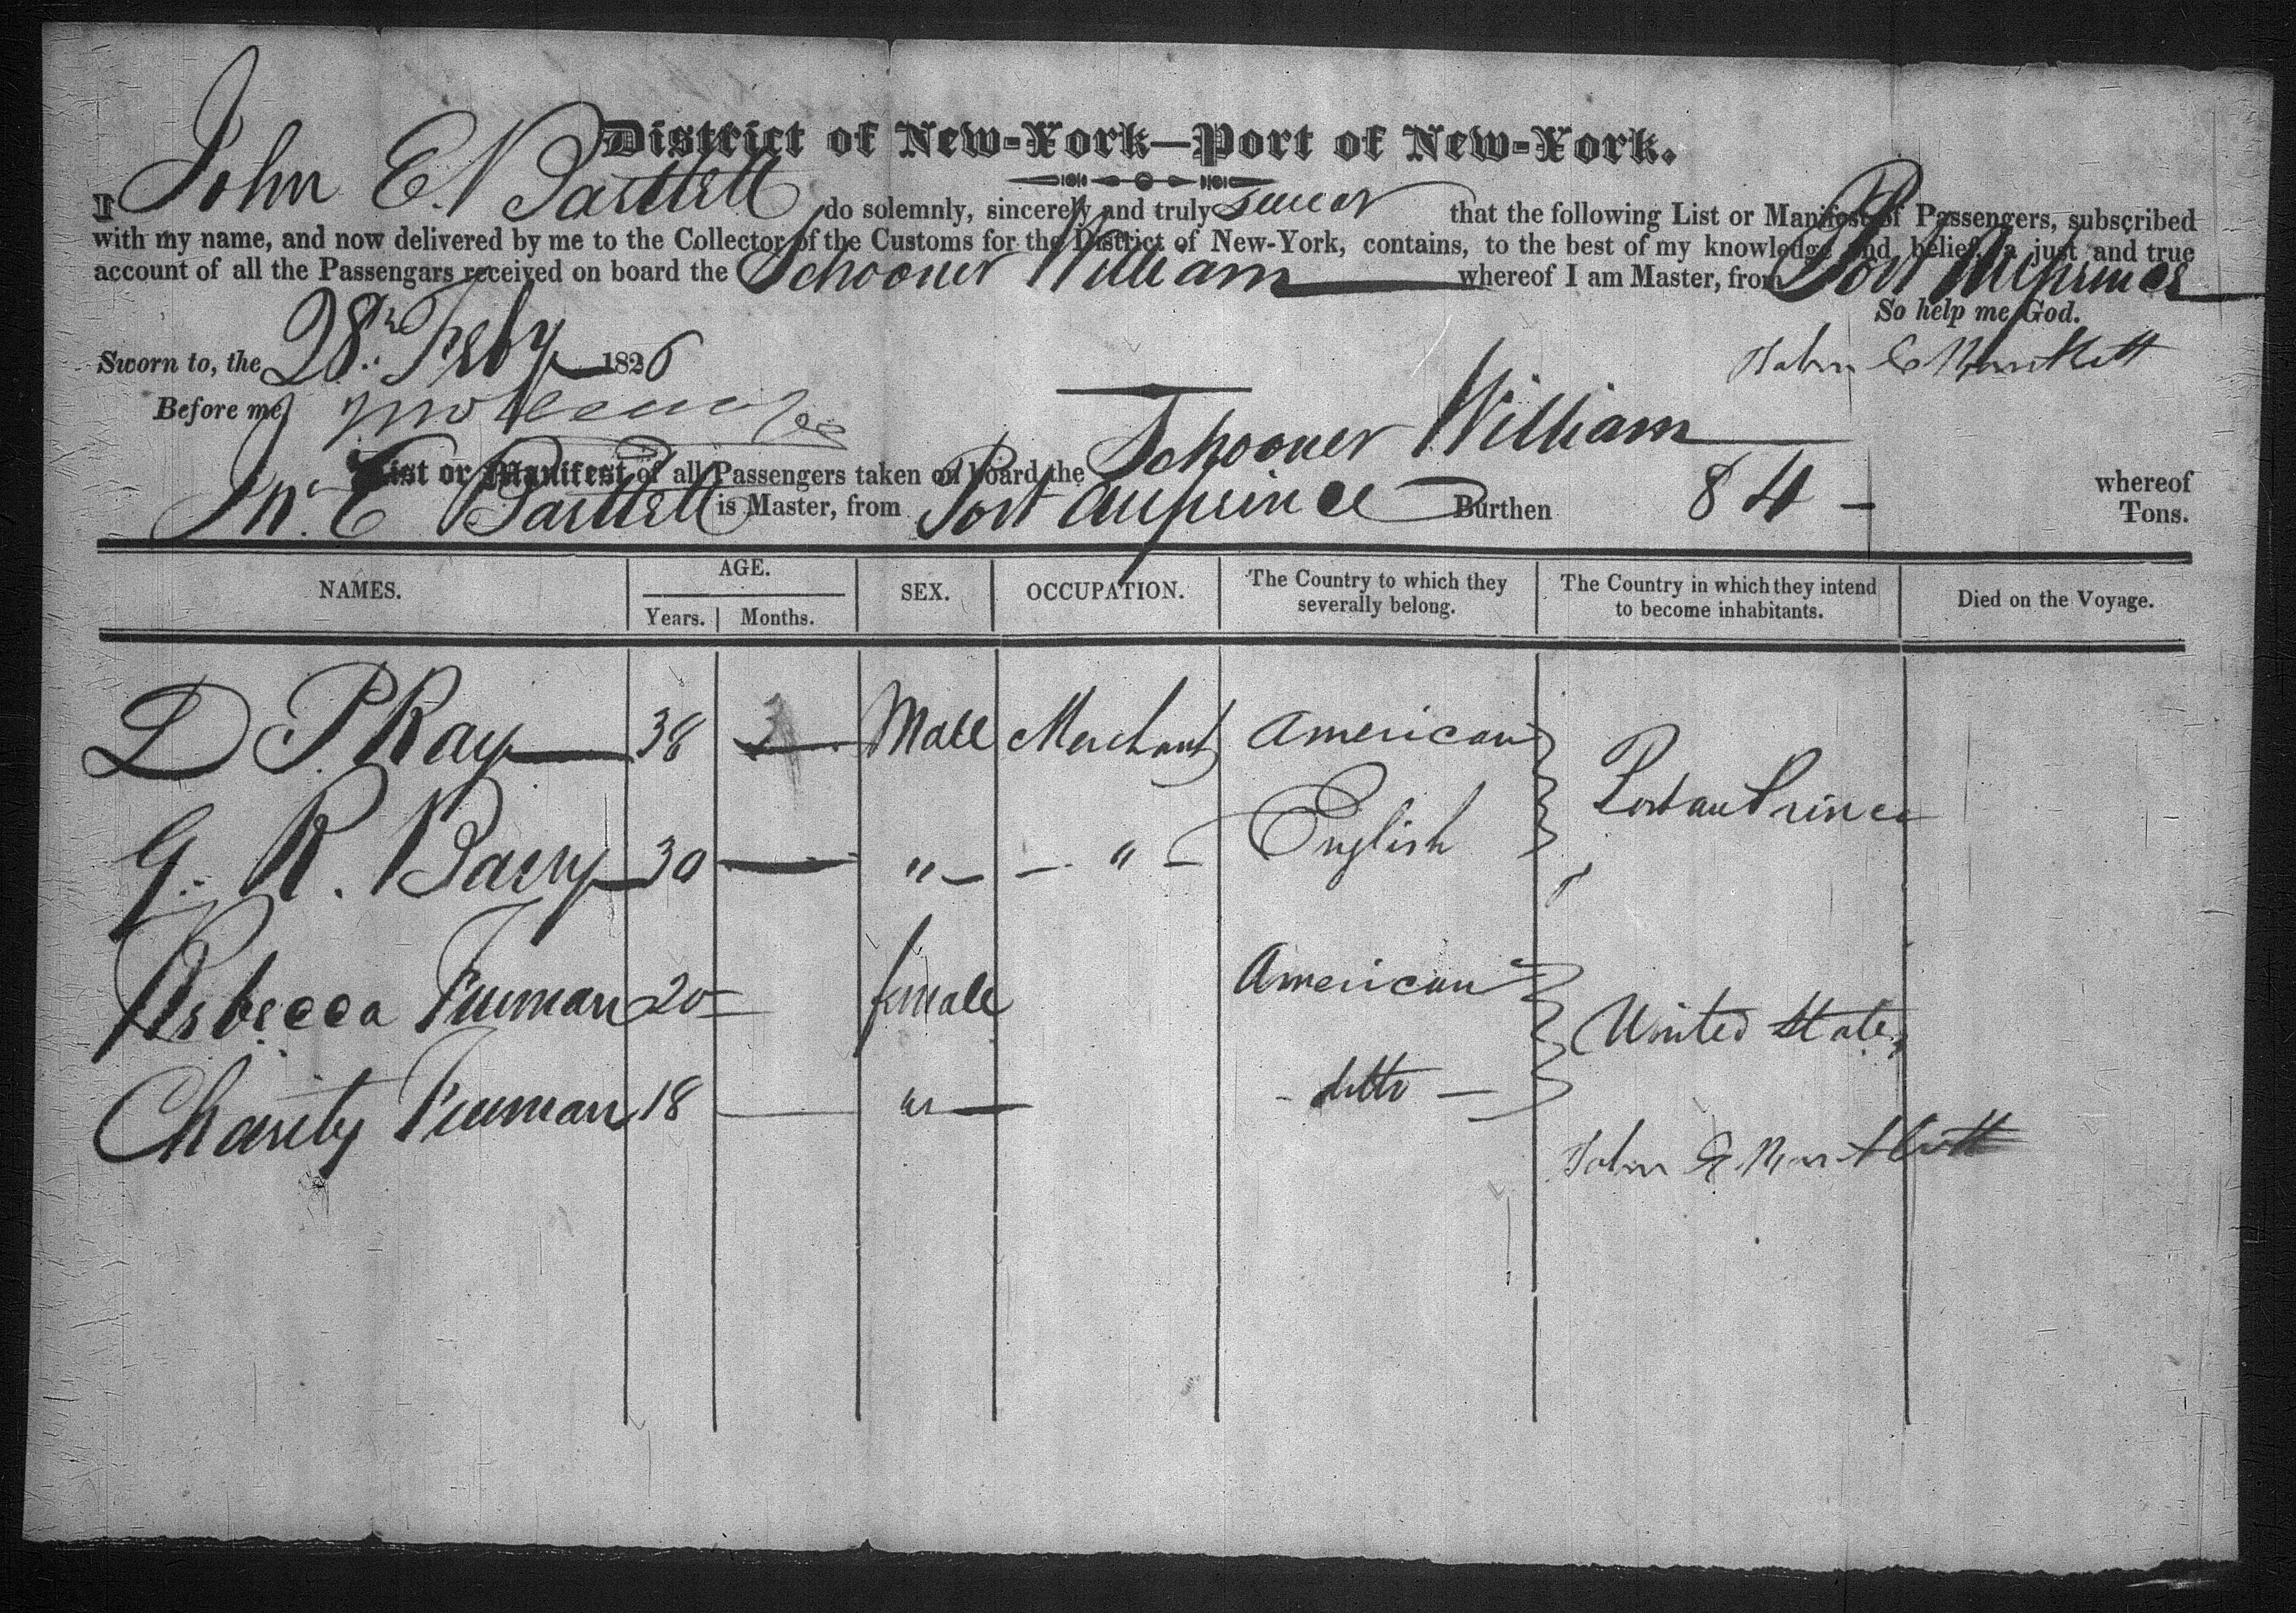 District of New-York—Port of New-York.
I John E. Bartlett do solemnly, sincerely and truly swear that the following List or Manifest of Passengers, subscribed
with my name, and now delivered by me to the Collector of the Customs for the District of New-York, contains, to the best of my knowledge and belief, a just and true
account of all the Passengars received on board the Schooner William whereof I am Master, from Port Auprince
So help me God.
Sworn to, the 28th Feby 1826
John E Bartlett
Before me,
List or Manifest of all Passengers taken on board the Schooner William whereof
Jn. E Bartlett is Master, from Port auprince Burthen 84 — Tons.
NAMES. AGE. SEX. OCCUPATION. The Country to which they severally belong. The Country in which they intend to become inhabitants. Died on the Voyage.
Years. Months.
D P Ray 38 — Male Merchant American
Port au Prince
G. R. Barry 30 — " — — " — English
Rebecca Freeman 20 — female American
United States
Charity Freeman 18 — " — - ditto —
John E Bartlett